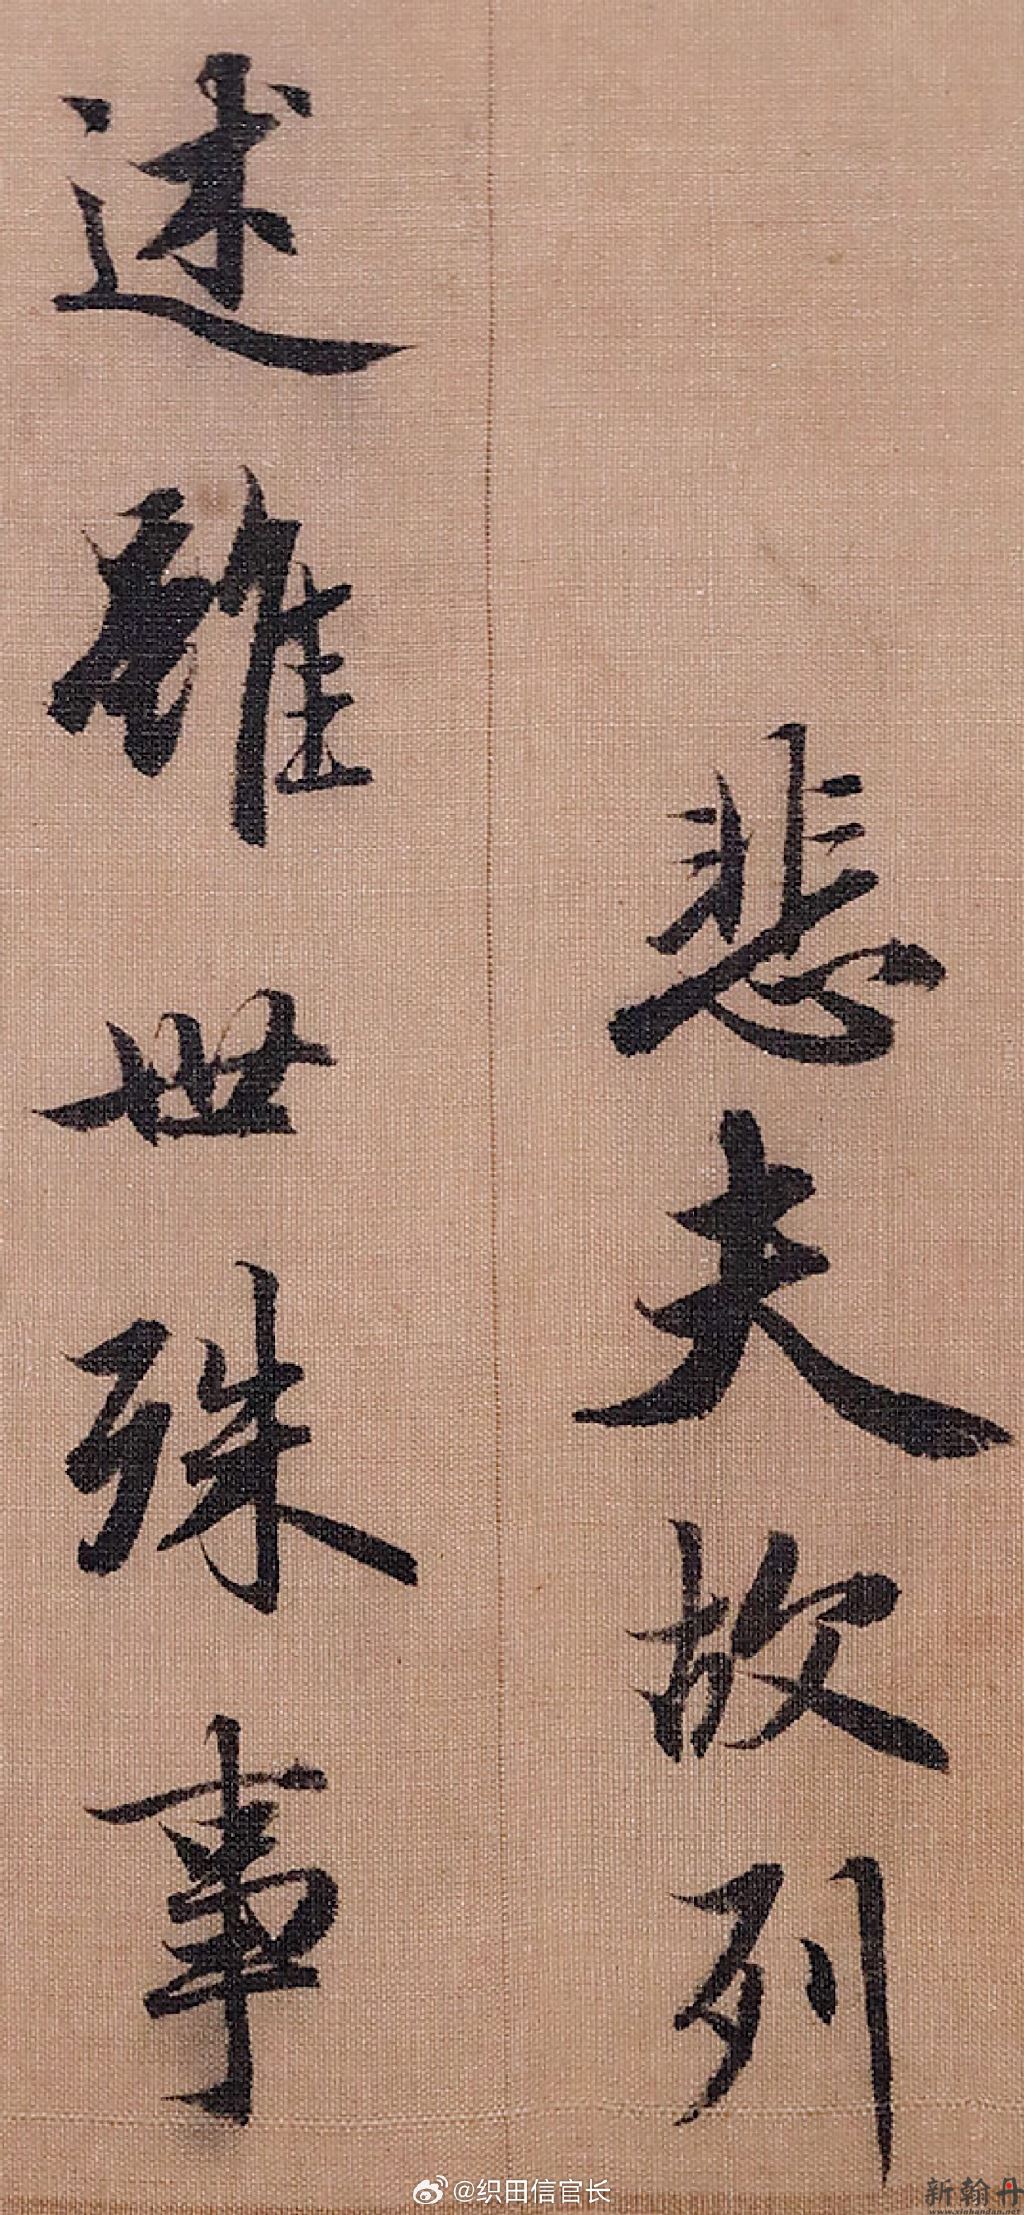 悲夫故列
述雖世殊事
@织田信官长
新翰丹
www.xinhandan.net